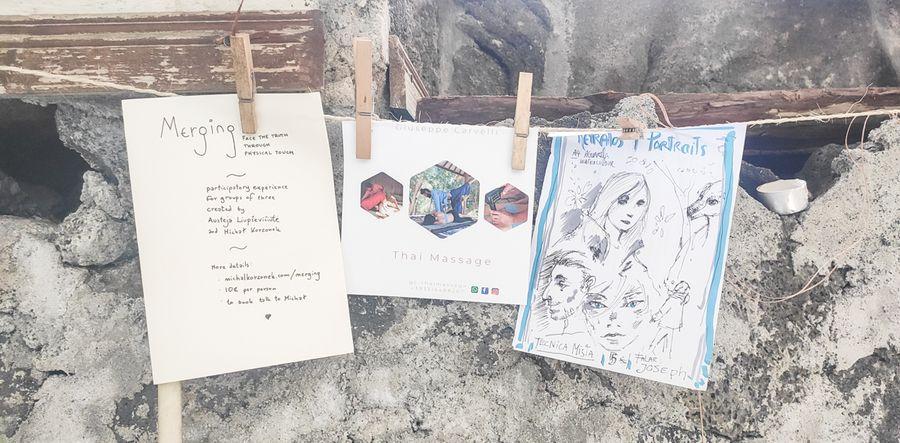 Merging
FACE THE TRUTH
THROUGH
PHYSICAL TOUCH
participatory experience
for groups of three
created by
and Michał Korzonek
More details:
· michalkorzonek.com/merging
· 10€ per person
· to book talk to Michał
Giuseppe Carvelli
Thai Massage
RETRATOS / PORTRAITS
TECNICA MISTA
15€ FALAR
JOSEPH